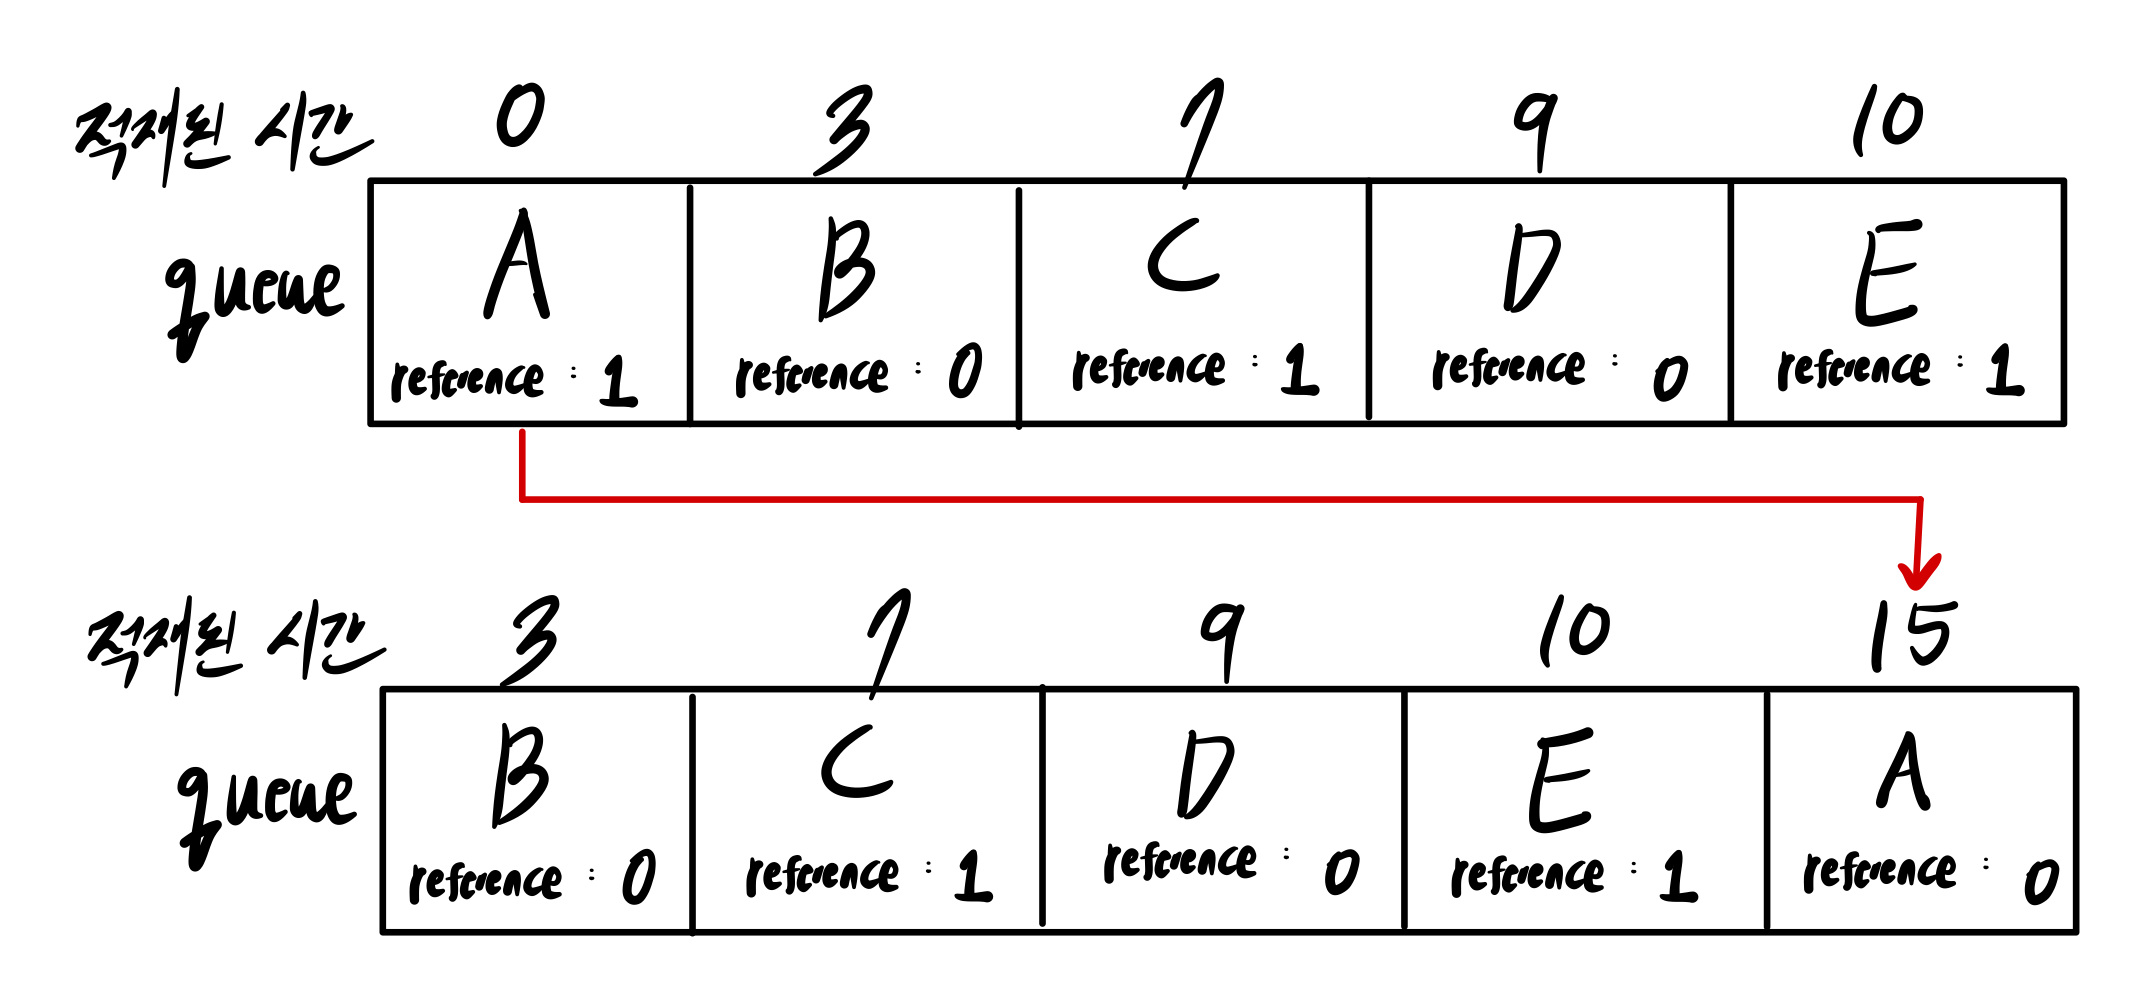 적재된 시간 0 3 7 9 10
queue A B C D E
reference : 1 reference : 0 reference : 1 reference : 0 reference : 1
적재된 시간 3 7 9 10 15
queue B C D E A
reference : 0 reference : 1 reference : 0 reference : 1 reference : 0